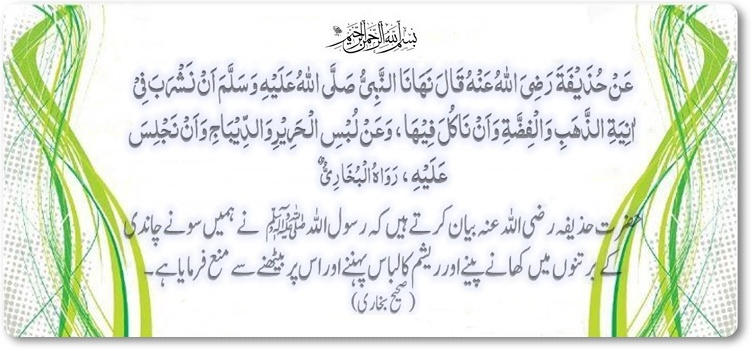 بسم الله الرحمن الرحيم
عَنْ حُذَيْفَةَ رَضِيَ اللهُ عَنْهُ قَالَ نَهَانَا النَّبِيُّ صَلَّى اللهُ عَلَيْهِ وَسَلَّمَ اَنْ نَشْرَبَ فِيْ
اٰنِيَةِ الذَّهَبِ وَالْفِضَّةِ وَاَنْ نَاكُلَ فِيْهَا، وَعَنْ لُبْسِ الْحَرِيْرِ وَالدِّيْبَاجِ وَاَنْ نَجْلِسَ
عَلَيْهِ، رَوَاهُ الْبُخَارِيُّ
حضرت حذیفہ رضی اللہ عنہ بیان کرتے ہیں کہ رسول اللہ ﷺ نے ہمیں سونے چاندی
کے برتنوں میں کھانے پینے اور ریشم کا لباس پہننے اور اس پر بیٹھنے سے منع فرمایا ہے۔
(صحیح بخاری)